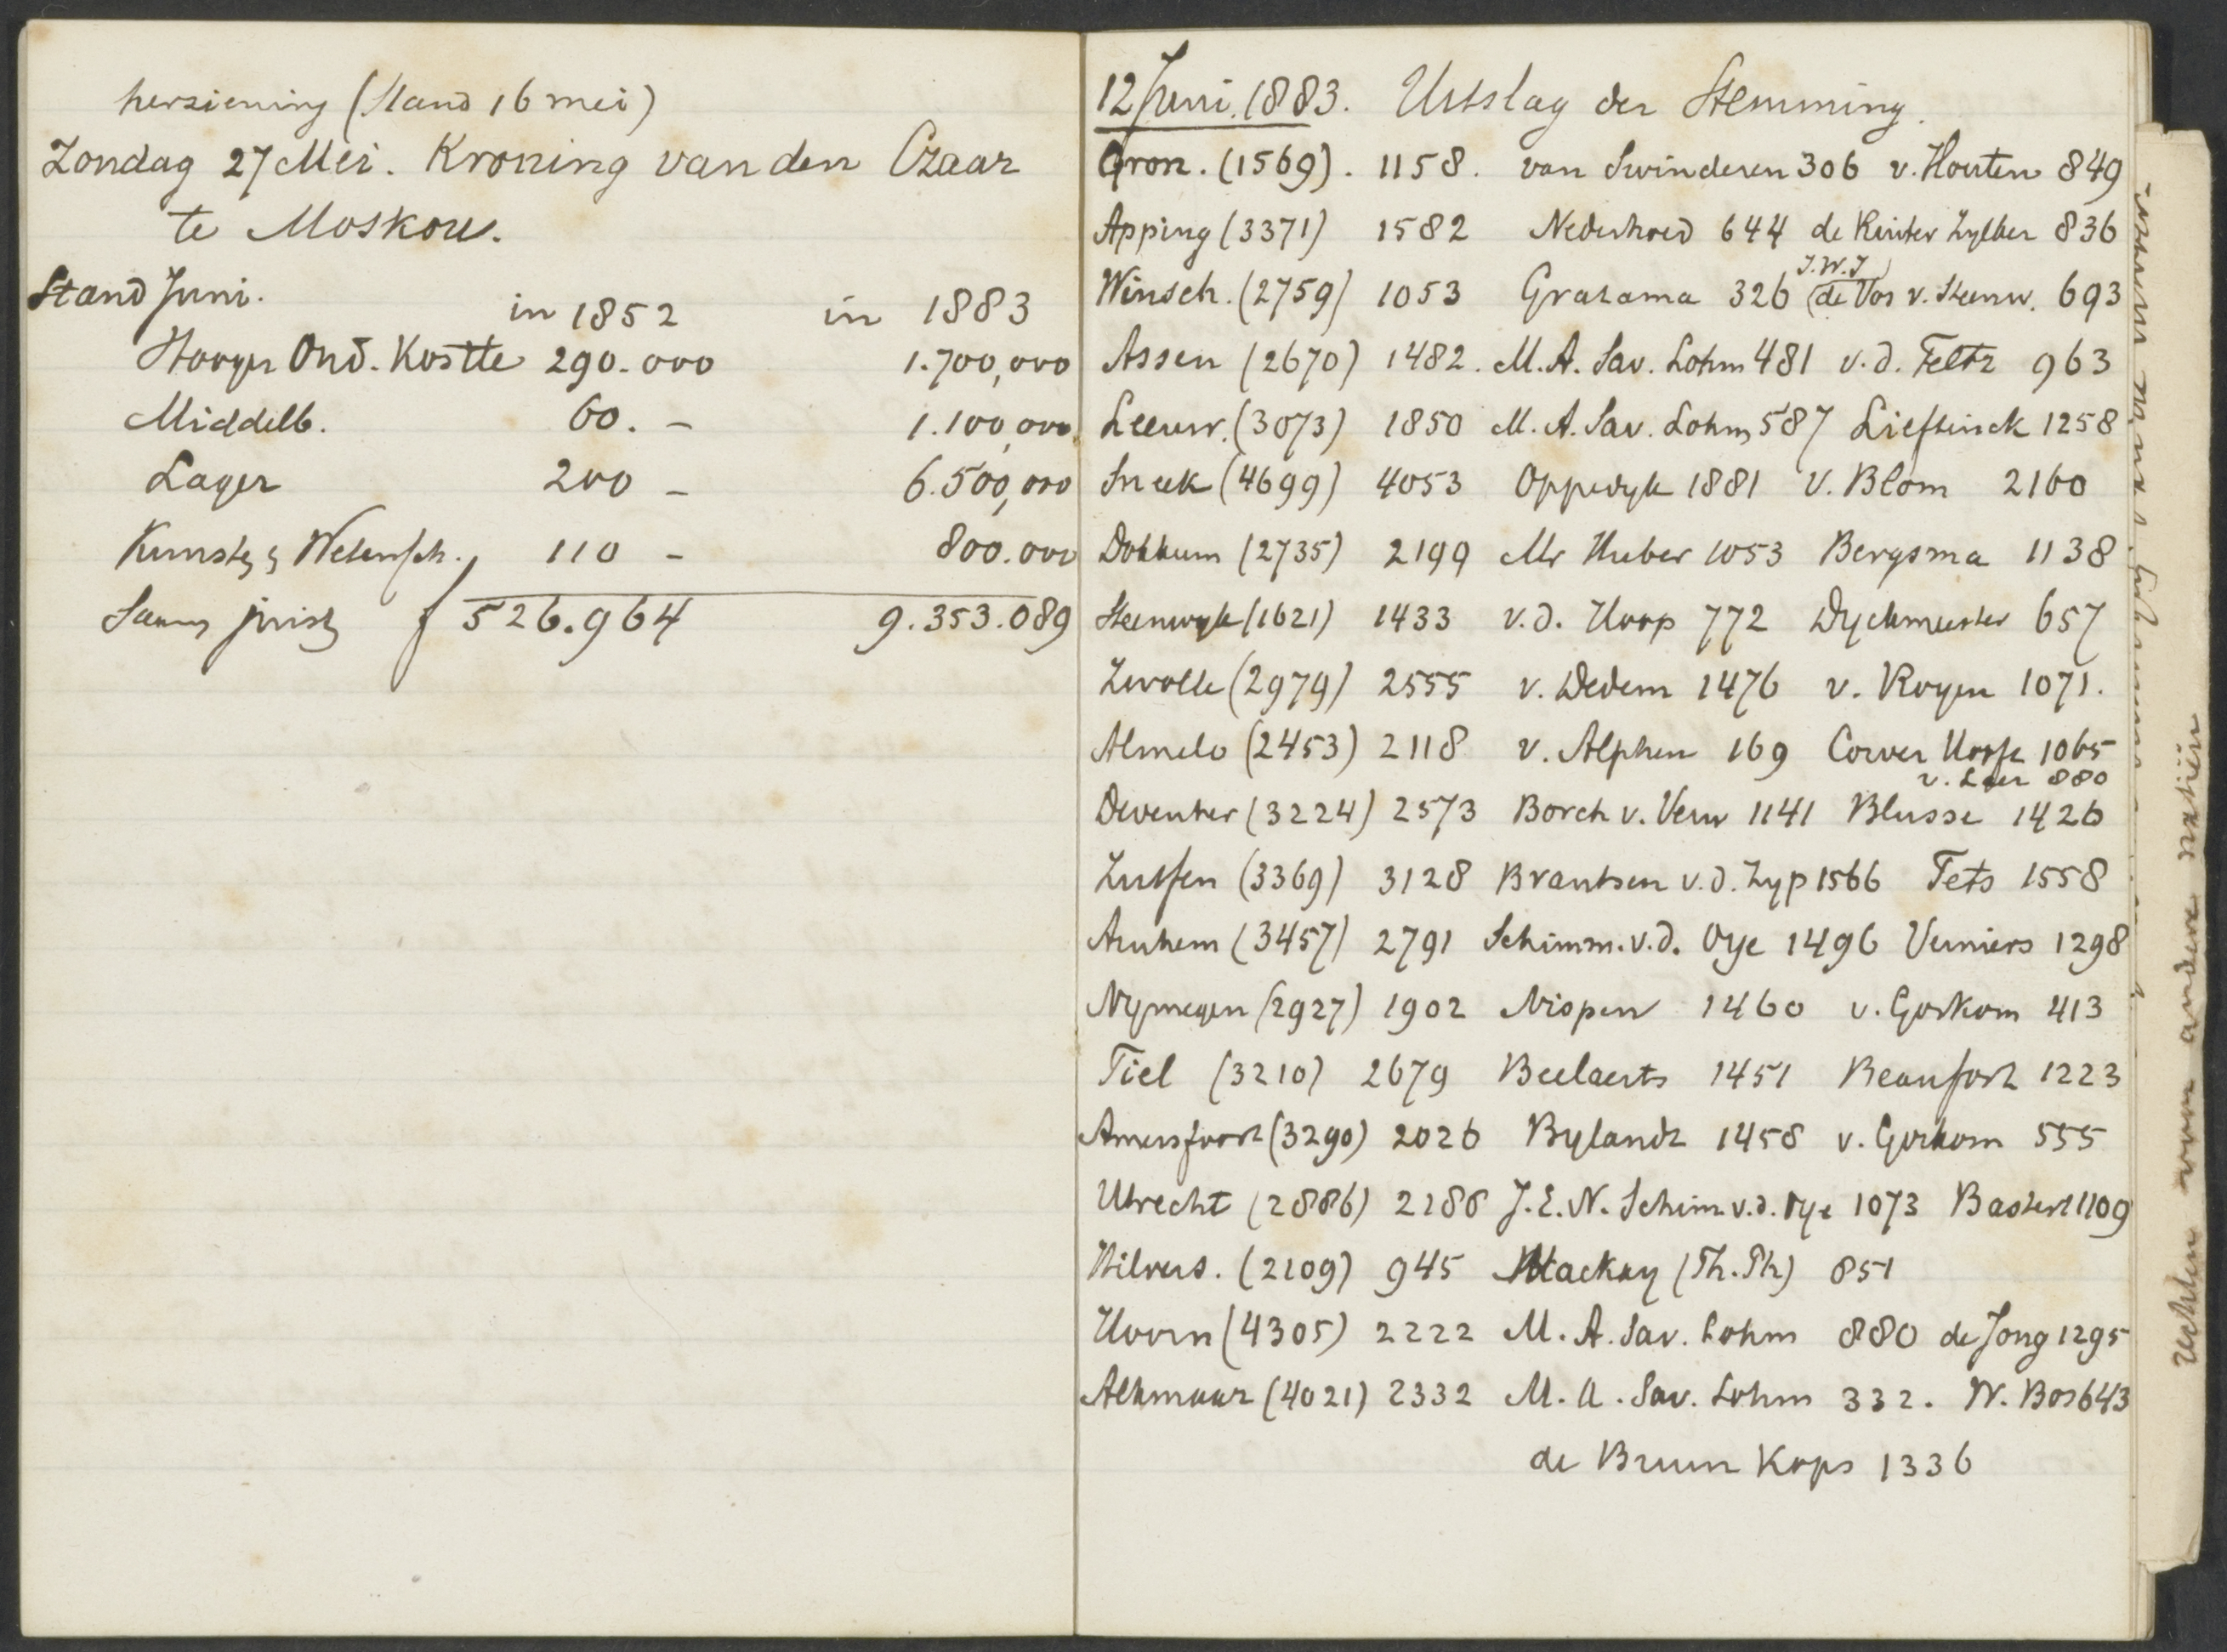 herziening (Stand 16 mei)
Zondag 27 Mei. Kroning van den Czaar
te Moskou.
Stand Juni.
in 1852 in 1883
Hooger Ond. Kostte 290.000 1.700,000
Middelb. 60. - 1.100,000
Lager 200 - 6.500,000
Kunst & Wetensch. 110 - 800.000
Samen juist f 526.964 9.353.089
12 Juni. 1883. Uitslag der Stemming.
Gron. (1569). 1158. van Swinderen 306 v. Houten 849
Apping (3371) 1582 Nederhoed 644 de Ruiter Zylker 836
J.W.J
Winsch. (2759) 1053 Gratama 326 (de Vos v. Steenw. 693
Assen (2670) 1482. M.A. Sav. Lohm 481 v.d. Feltz 963
Leeuw. (3073) 1850 M.A. Sav. Lohm 587 Lieftinck 1258
Sneek (4699) 4053 Oppedyk 1881 V. Blom 2160
Dokkum (2735) 2199 Mr Huber 1053 Bergsma 1138
Steenwyk (1621) 1433 v.d. Hoop 772 Dyckmeester 657
Zwolle (2979) 2555 v. Dedem 1476 v. Royen 1071.
Almelo (2453) 2118 v. Alphen 169 Corver Hooft 1065
v. Loer 880
Deventer (3224) 2573 Borch v. Verw 1141 Blusse 1426
Zutfen (3369) 3128 Brantsen v.d. Zyp 1566 Tets 1558
Arnhem (3457) 2791 Schimm. v.d. Oye 1496 Verniers 1298
Nymegen (2927) 1902 Nispen 1460 v. Gorkom 413
Tiel (3210) 2679 Beelaerts 1451 Beaufort 1223
Amersfoort (3290) 2026 Bylandt 1458 v. Gorkom 555
Utrecht (2886) 2188 J.E.N. Schim v.d. Oye 1073 Bastert 1109
Hilvers. (2109) 945 Mackay (Th. Ph) 851
Hoorn (4305) 2222 M.A. Sav. Lohm 880 de Jong 1295
Alkmaar (4021) 2332 M.A. Sav. Lohm 332. W. Bos 643
de Bruun Kops 1336
van andere natiën